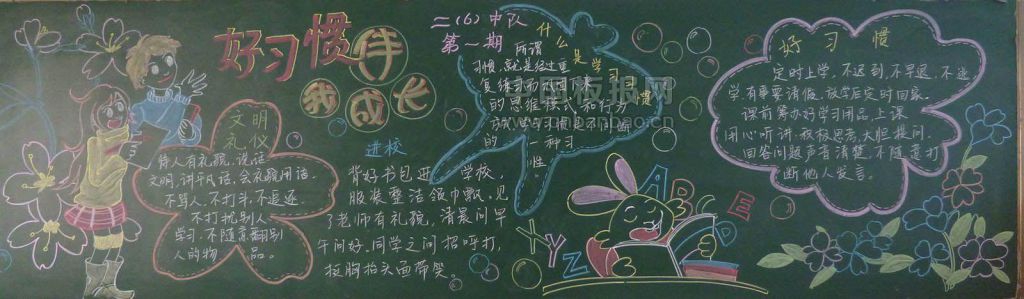 好习惯伴
我成长
二(6)中队
第一期
文明
礼仪
待人有礼貌,说话
文明,讲平凡话,会礼貌用语。
不骂人、不打斗、不追逐
不打扰别人
学习,不随意翻别
人的物品。
进校
背好书包进学校,
服装整洁领巾飘,见
了老师有礼貌,清晨问早
午问好,同学之间招呼打,
挺胸抬头面带笑。
什么是学习习惯
所谓
习惯,就是经过重
复练习而巩固下来
的思维模式和行为
方式
学习习惯是不断
的一种习
性。
XYZ
ABCDE
好习惯
定时上学,不迟到,不早退,不逃
学有事要请假。放学后定时回家。
课前筹办好学习用品,上课
用心听讲,积极思考,大胆提问。
回答问题声音清楚,不随意打
断他人发言。